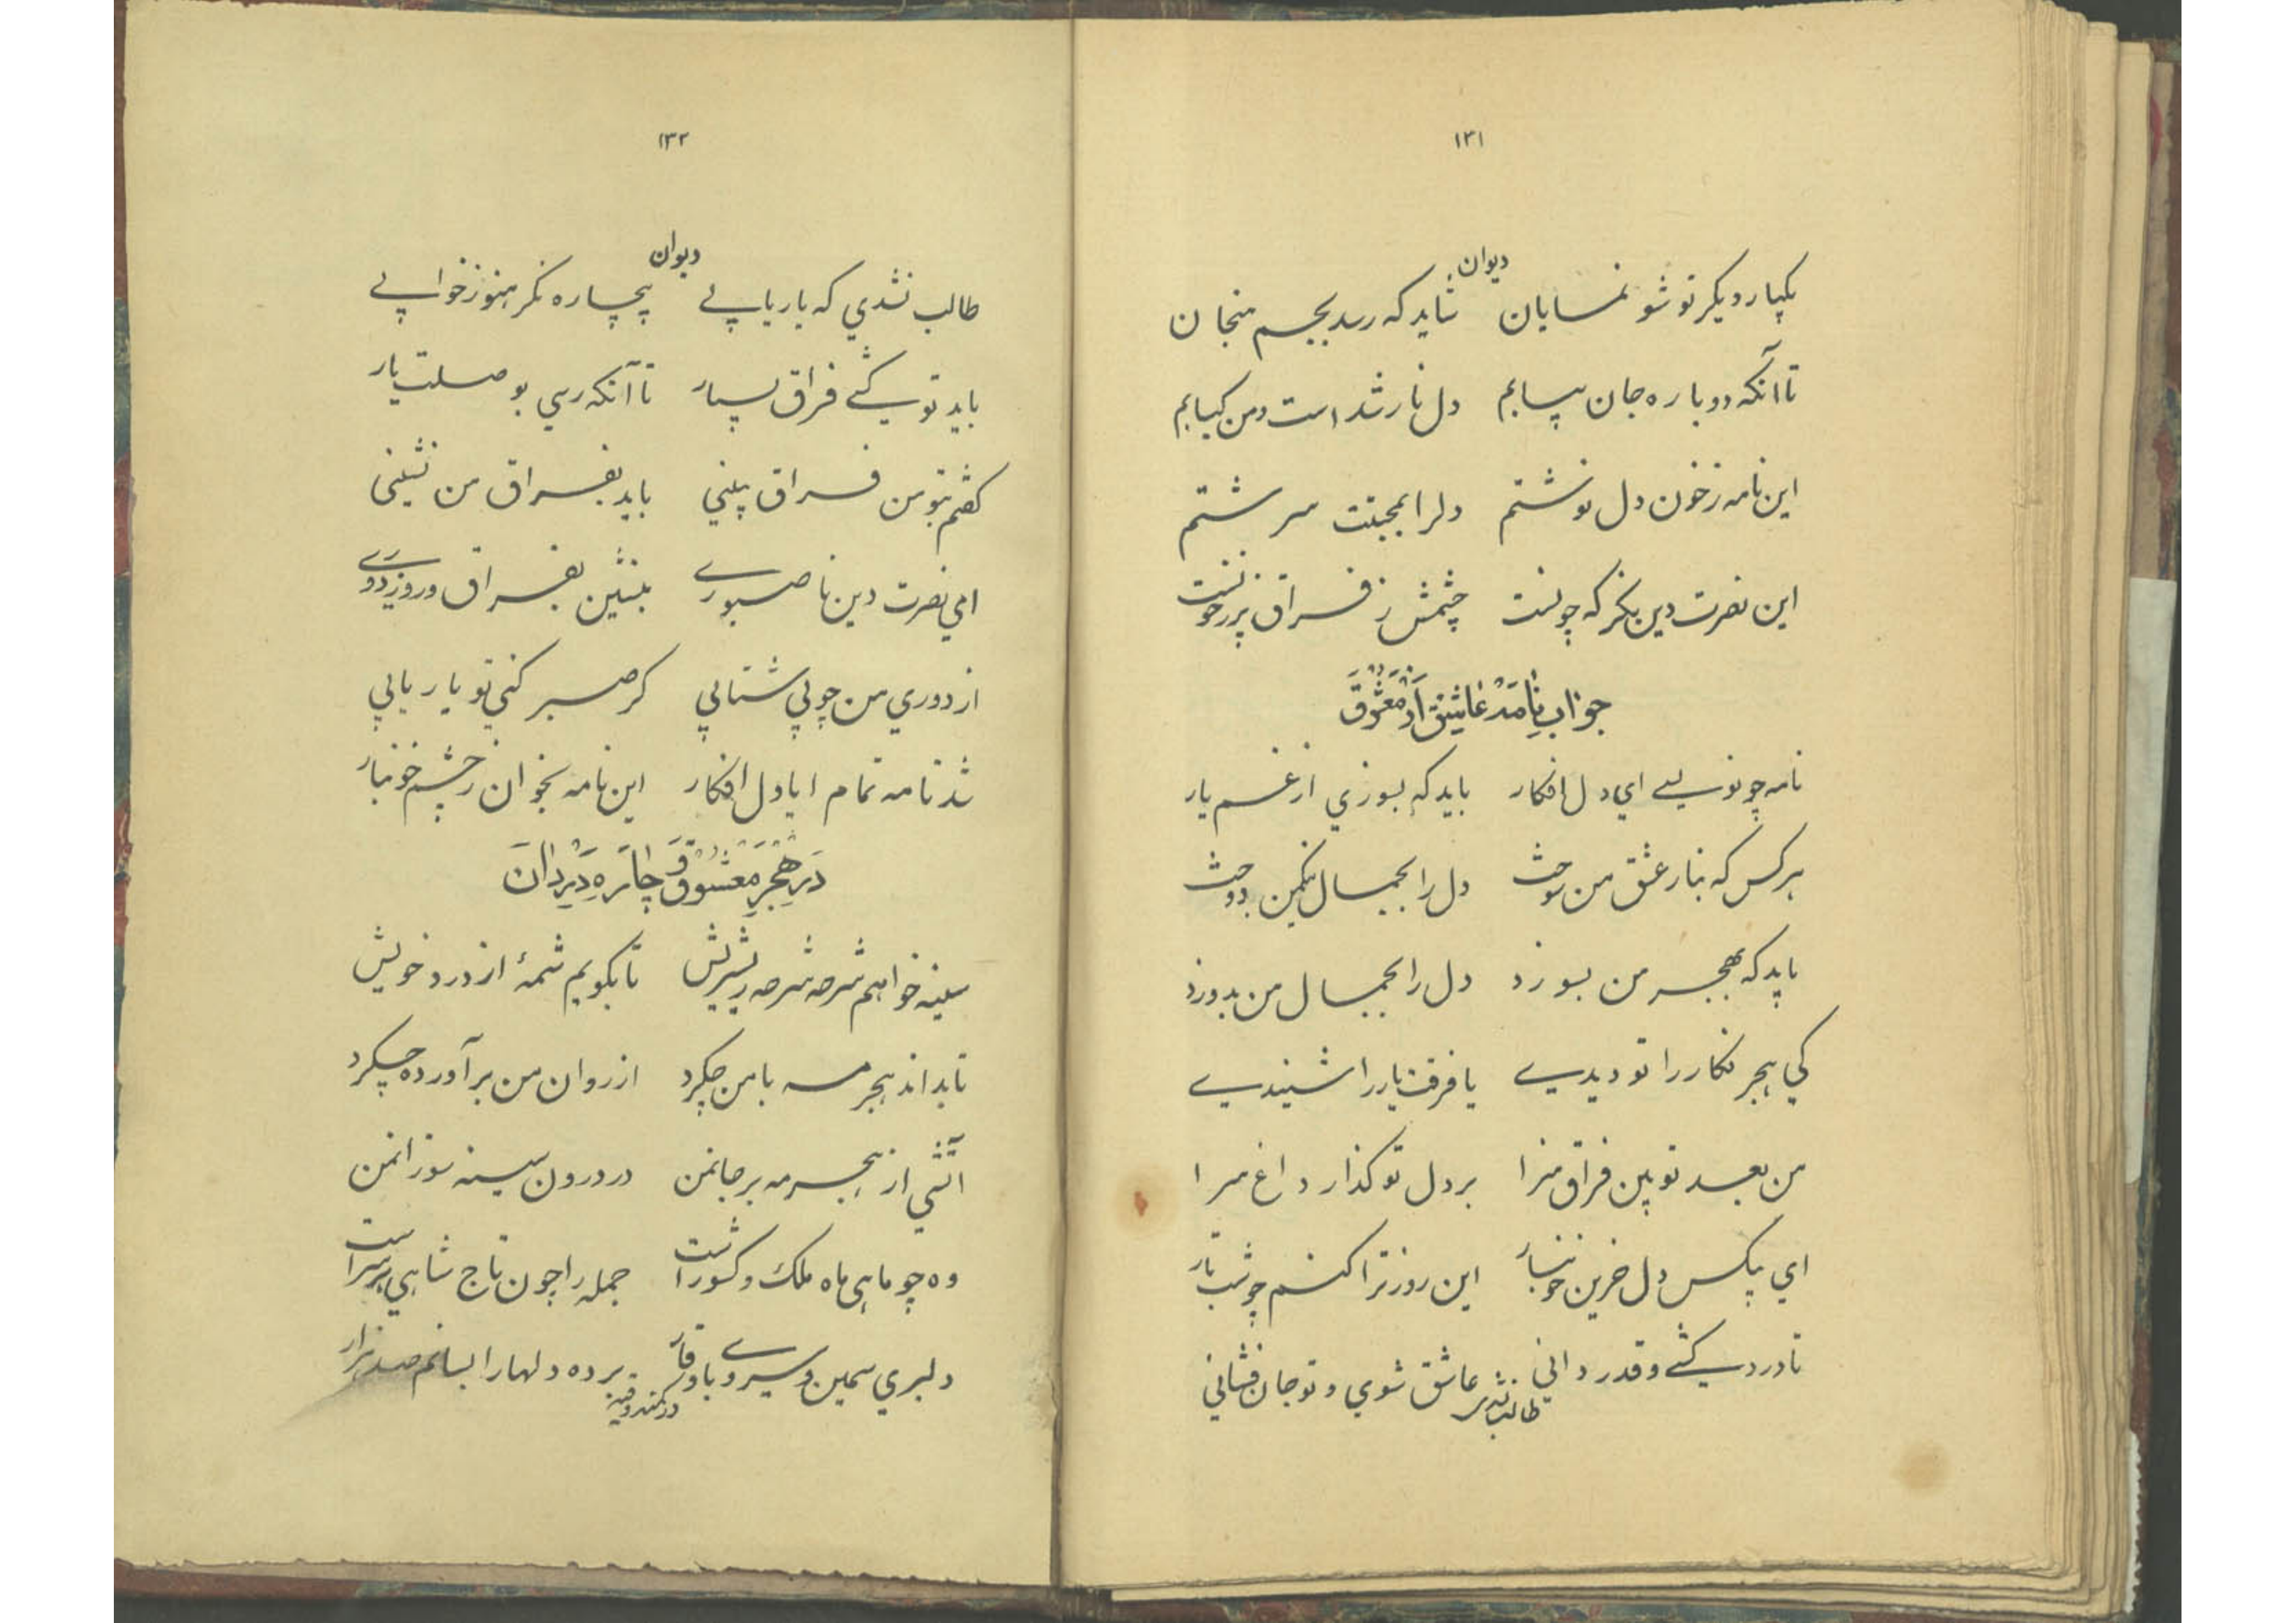 ۱۳۱
دیوان
یکبار دیکر تو شو نمایان شاید که رسد بجسم منجان
تا آنکه دوباره جان بیابم دل نار شد است و من کبابم
این نامه ز خون دل نوشتم دلرا بمحبتت سرشتم
این نصرت دین بکر که چونست چشمش ز فراق پر ز خونست
جواب نامه عاشق از معشوق
نامه چو نویسی اي دل افکار باید که بسوزي از غم یار
هر کس که بنار عشق من سوخت دل را بجمال نمکین دوخت
باید که بهجر من بسوزد دل را بجمال من بدوزد
کي هجر نکار را تو دیدي یا فرقت یار را شنیدي
من بعد تو بین فراق مرا بر دل تو کذار داغ مرا
اي بیکس دل حزین خونبار این روز ترا کنم چو شب تار
تا درد کشي و قدر داني عاشق شوي و تو جان فشاني
طالب نشدي
۱۳۲
دیوان
طالب نشدي که یار یابي بیچاره نکر هنوز خوابي
باید تو کشي فراق بسیار تا آنکه رسي بوصلت یار
کفتم بتو من فراق بیني باید بفراق من نشیني
اي نصرت دین نا صبوري بنشین بفراق و روز دوري
از دوري من چو بي شتابي کر صبر کني تو یار یابي
شد نامه تمام ایا دل افکار این نامه بخوان ز چشم خونبار
در هجر معشوق و چاره دیدن آن
سینه خواهم شرحه شرحه ریش ریش تا بکویم شمهٔ از درد خویش
تا بداند هجر مه با من چکرد از روان من بر آورده چکرد
آتشي از هجر مه بر جانمن در درون سینه سوزانمن
وه چو ماهي ماه ملک و کشور است جمله را چون تاج شاهي بر سر است
دلبري سیمین و سروي با وقار برده دلها را بسانم صد هزار
در کمند